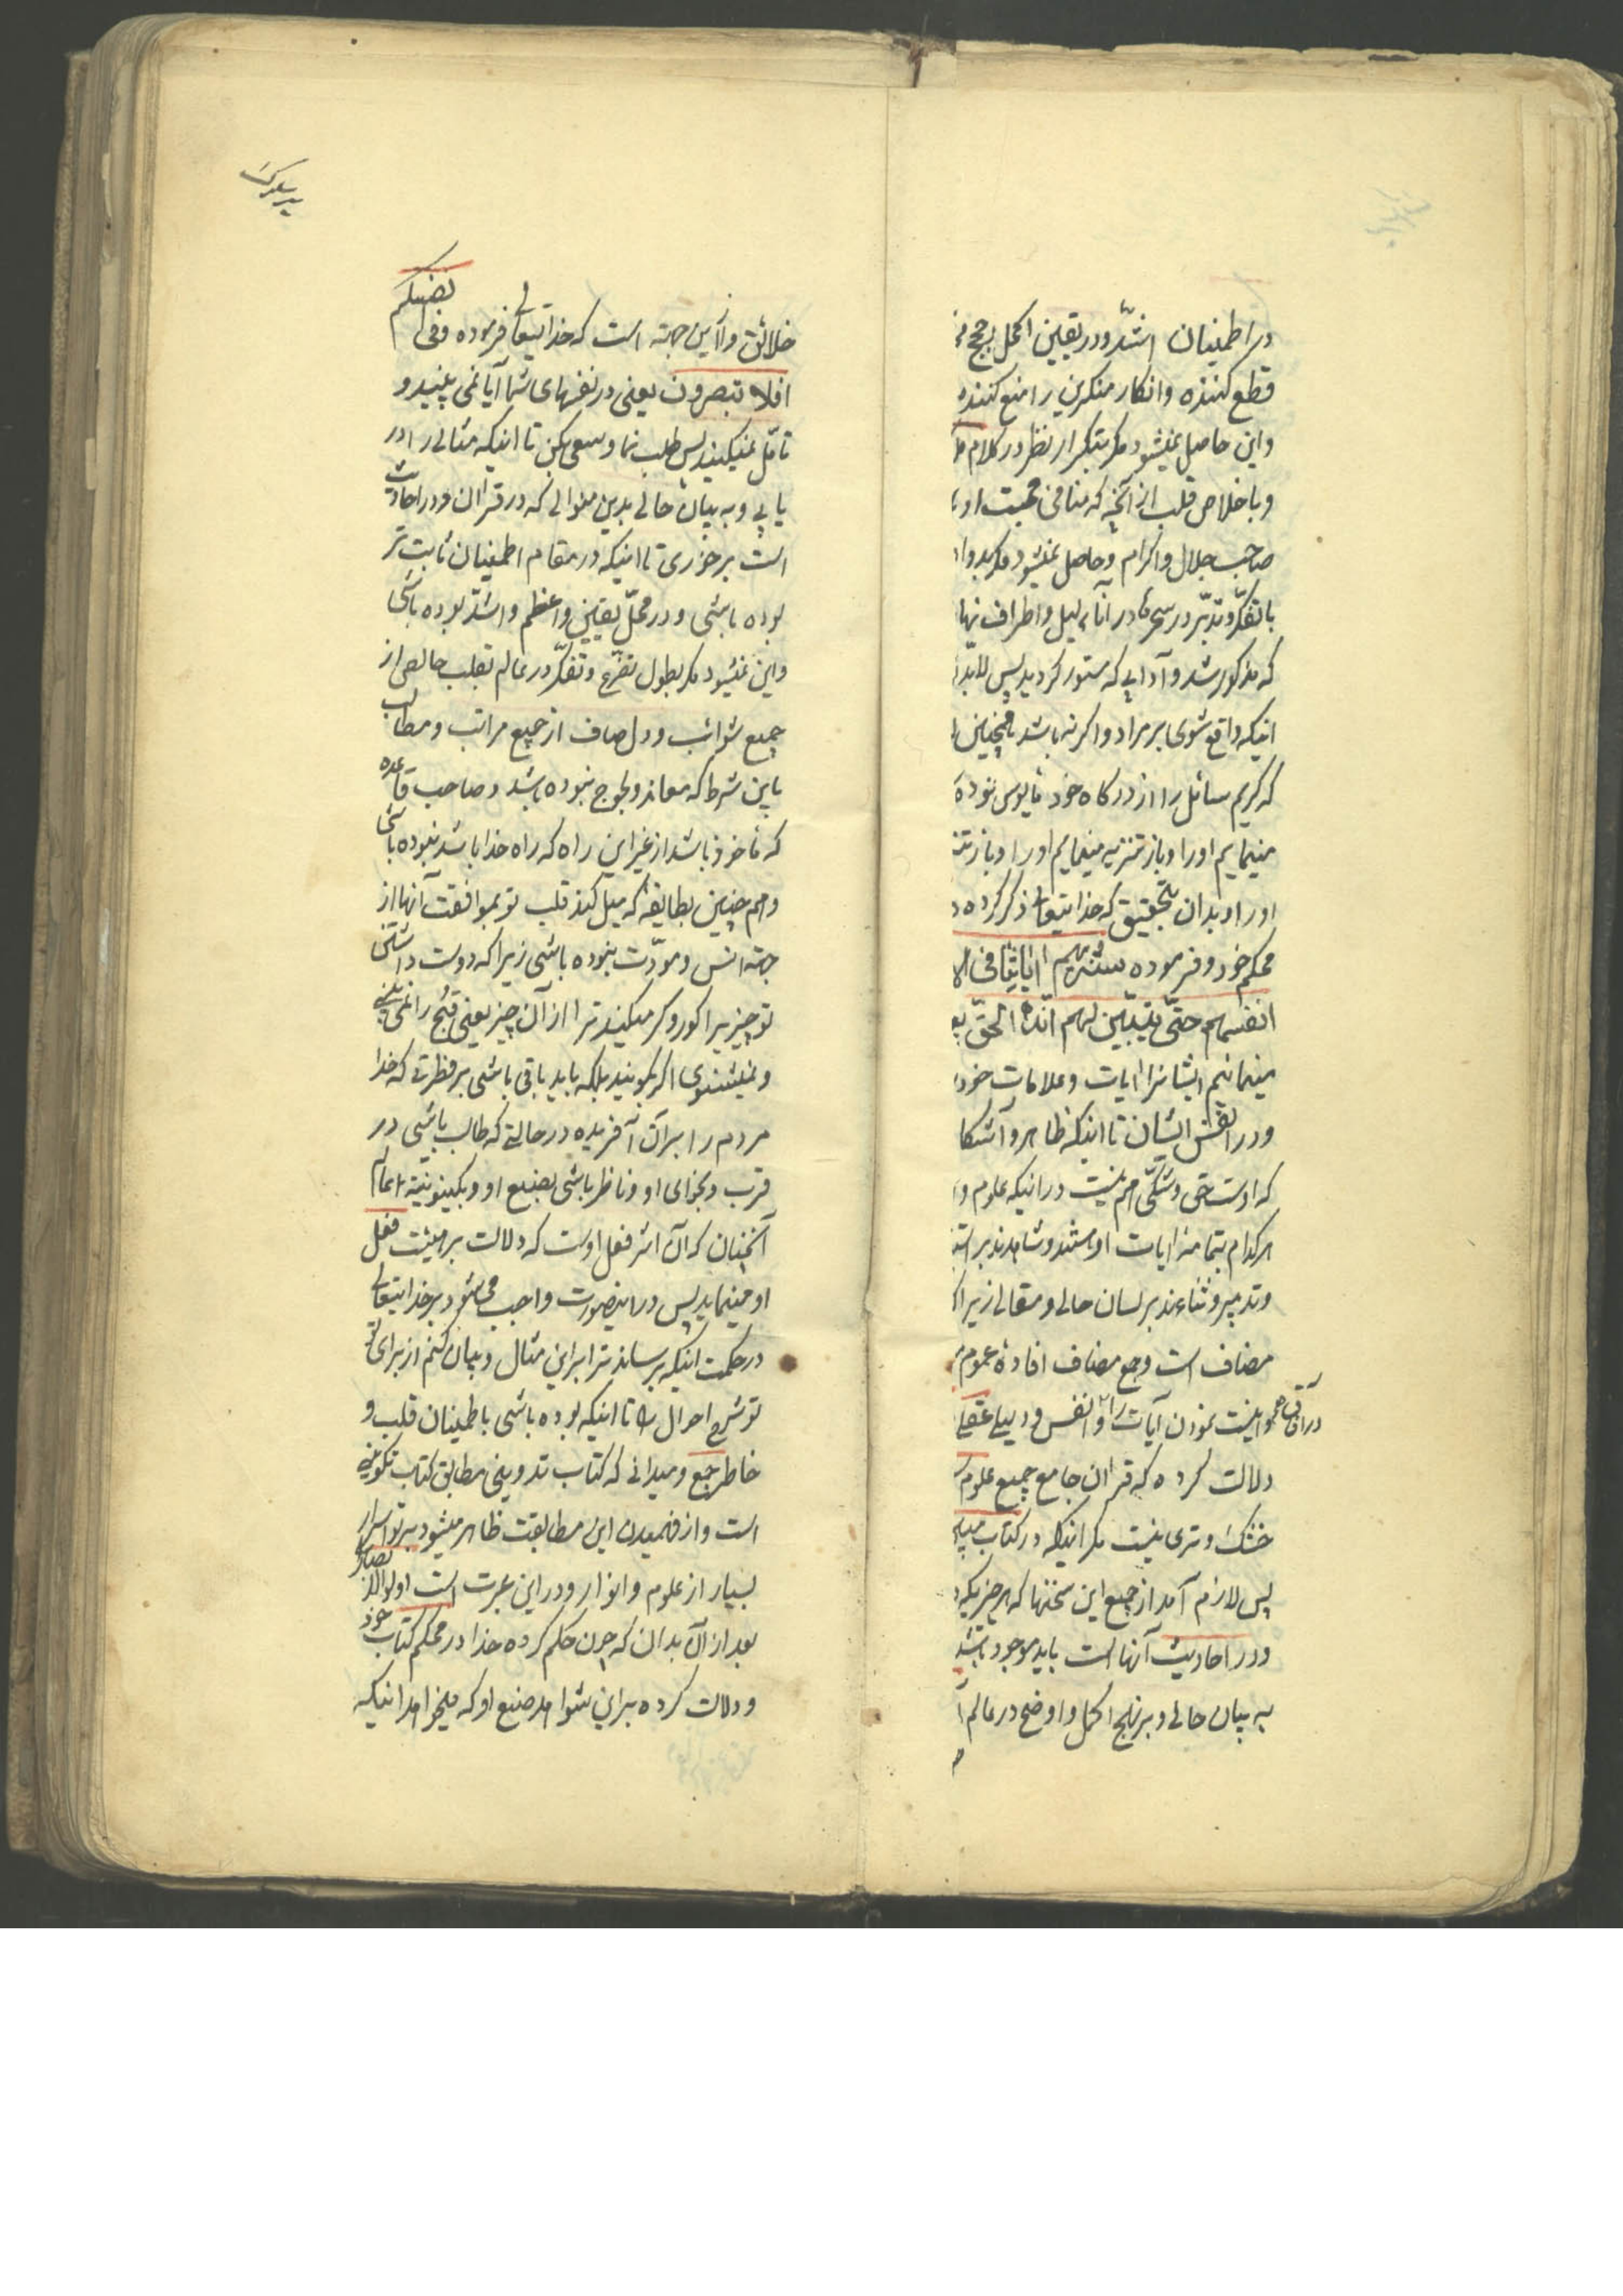 در اطمینان اشدّ و در یقین اکمل بحجج
قطع کننده و انکار منکرین را منع کننده
و این حاصل نمیشود مکر بتکرار نظر در کلام
و باخلاص قلب از آنچه که منافی محبت او
صاحب جلال و اکرام و حاصل نمیشود مکر بدوا
با تفکّر و تدبّر در سحرها در اناء لیل و اطراف نها
که مذکور شد و آدابی که مستور کردید پس لابدّ
اینکه واقع شوی بر مراد و اکر نه باشد همچنین
که کریم سائل را از درکاه خود مایوس نموده
مینمایم او را و باز تنزیه مینمایم او را و باز تنز
او را و بدان بتحقیق که خدایتعالی ذکر کرده
محکم خود و فرموده سنریهم آیاتنا فی الا
انفسهم حتّی یتبیّن لهم انّه الحقّ یع
مینمائیم ایشانرا ایات و علامات خود
و در انفس ایشان تا اینکه ظاهر و آشکا
که اوست حق و شکّی هم نیست در اینکه علوم و
هر کدام بتمامه از ایات او هستند و شاهدند بر
و تدبیر و ثناءند بر لسان حالی و مقالی زیرا
مضاف است و جمع مضاف افادهٔ عموم
در آفاق
همو اینست نمودن آیات را و انفس و دلیل عقلی
دلالت کرده که قران جامع جمیع علوم
خشک و تری نیست مکر اینکه در کتاب مبین
پس لازم آمد از جمیع این سخنها که هر چیزیکه
و در احادیث آنها است باید موجود باشد
به بیان حالی و بر نهج اکمل و اوضح در عالم
خلائق و از این جهته است که خدایتعالی فرموده و فی انفسکم
افلا تبصرون یعنی در نفسهای شما آیا نمی بینید و
تامّل نمیکنید پس طلب نما و سعی بکن تا اینکه مثالی را در
یابی و به بیان حالی بدین منوالی که در قران و در احادیث
است برخوری تا اینکه در مقام اطمینان ثابت تر
بوده باشی و در محلّ یقین و اعظم و اشدّ بوده باشی
و این نمیشود مکر بطول تضرّع و تفکّر در عالم بقلب خالص از
جمیع شوائب و دل صاف از جمیع مراتب و مطالب
باین شرط که معاند و لجوج نبوده باشد و صاحب قاعده
که ماخوذ باشد از غیر این راه که راه خدا باشد نبوده باشی
و هم چنین بطایفه که میل کند قلب تو بموافقت آنها از
جهته انس و مودّت نبوده باشی زیرا که دوست داشتن
تو چیزیرا کور و کر میکند ترا از آن چیز یعنی قبح را نمی بینی
و نمیشنوی اکر بکویند بلکه باید باقی باشی بر فطرتی که خدا
مردم را بر آن آفریده در حالتی که طالب باشی در
قرب و بخدای او و ناظر باشی بصنیع او و بکینونیته اعمالهم
آنچنان که آن اثر فعل اوست که دلالت بر هیئت فعل
او مینماید پس در اینصورت واجب میشود بر خدایتعالی
در حکمت اینکه برساند ترا بر این مثال و بیان کنم از برای تو
تو شرح احوال را تا اینکه بوده باشی باطمینان قلب و
خاطر جمع و میدانی که کتاب تدوینی مطابق کتاب تکوینی
است و از فهمیدن این مطابقت ظاهر میشود بر تو اسرار
بسیار از علوم و انوار و در این عبرت است اولوالابصار
بعد از آن بدان که چون حکم کرده خدا در محکم کتاب خود
و دلالت کرده بر این شواهد صنیع او که میخواهد اینکه